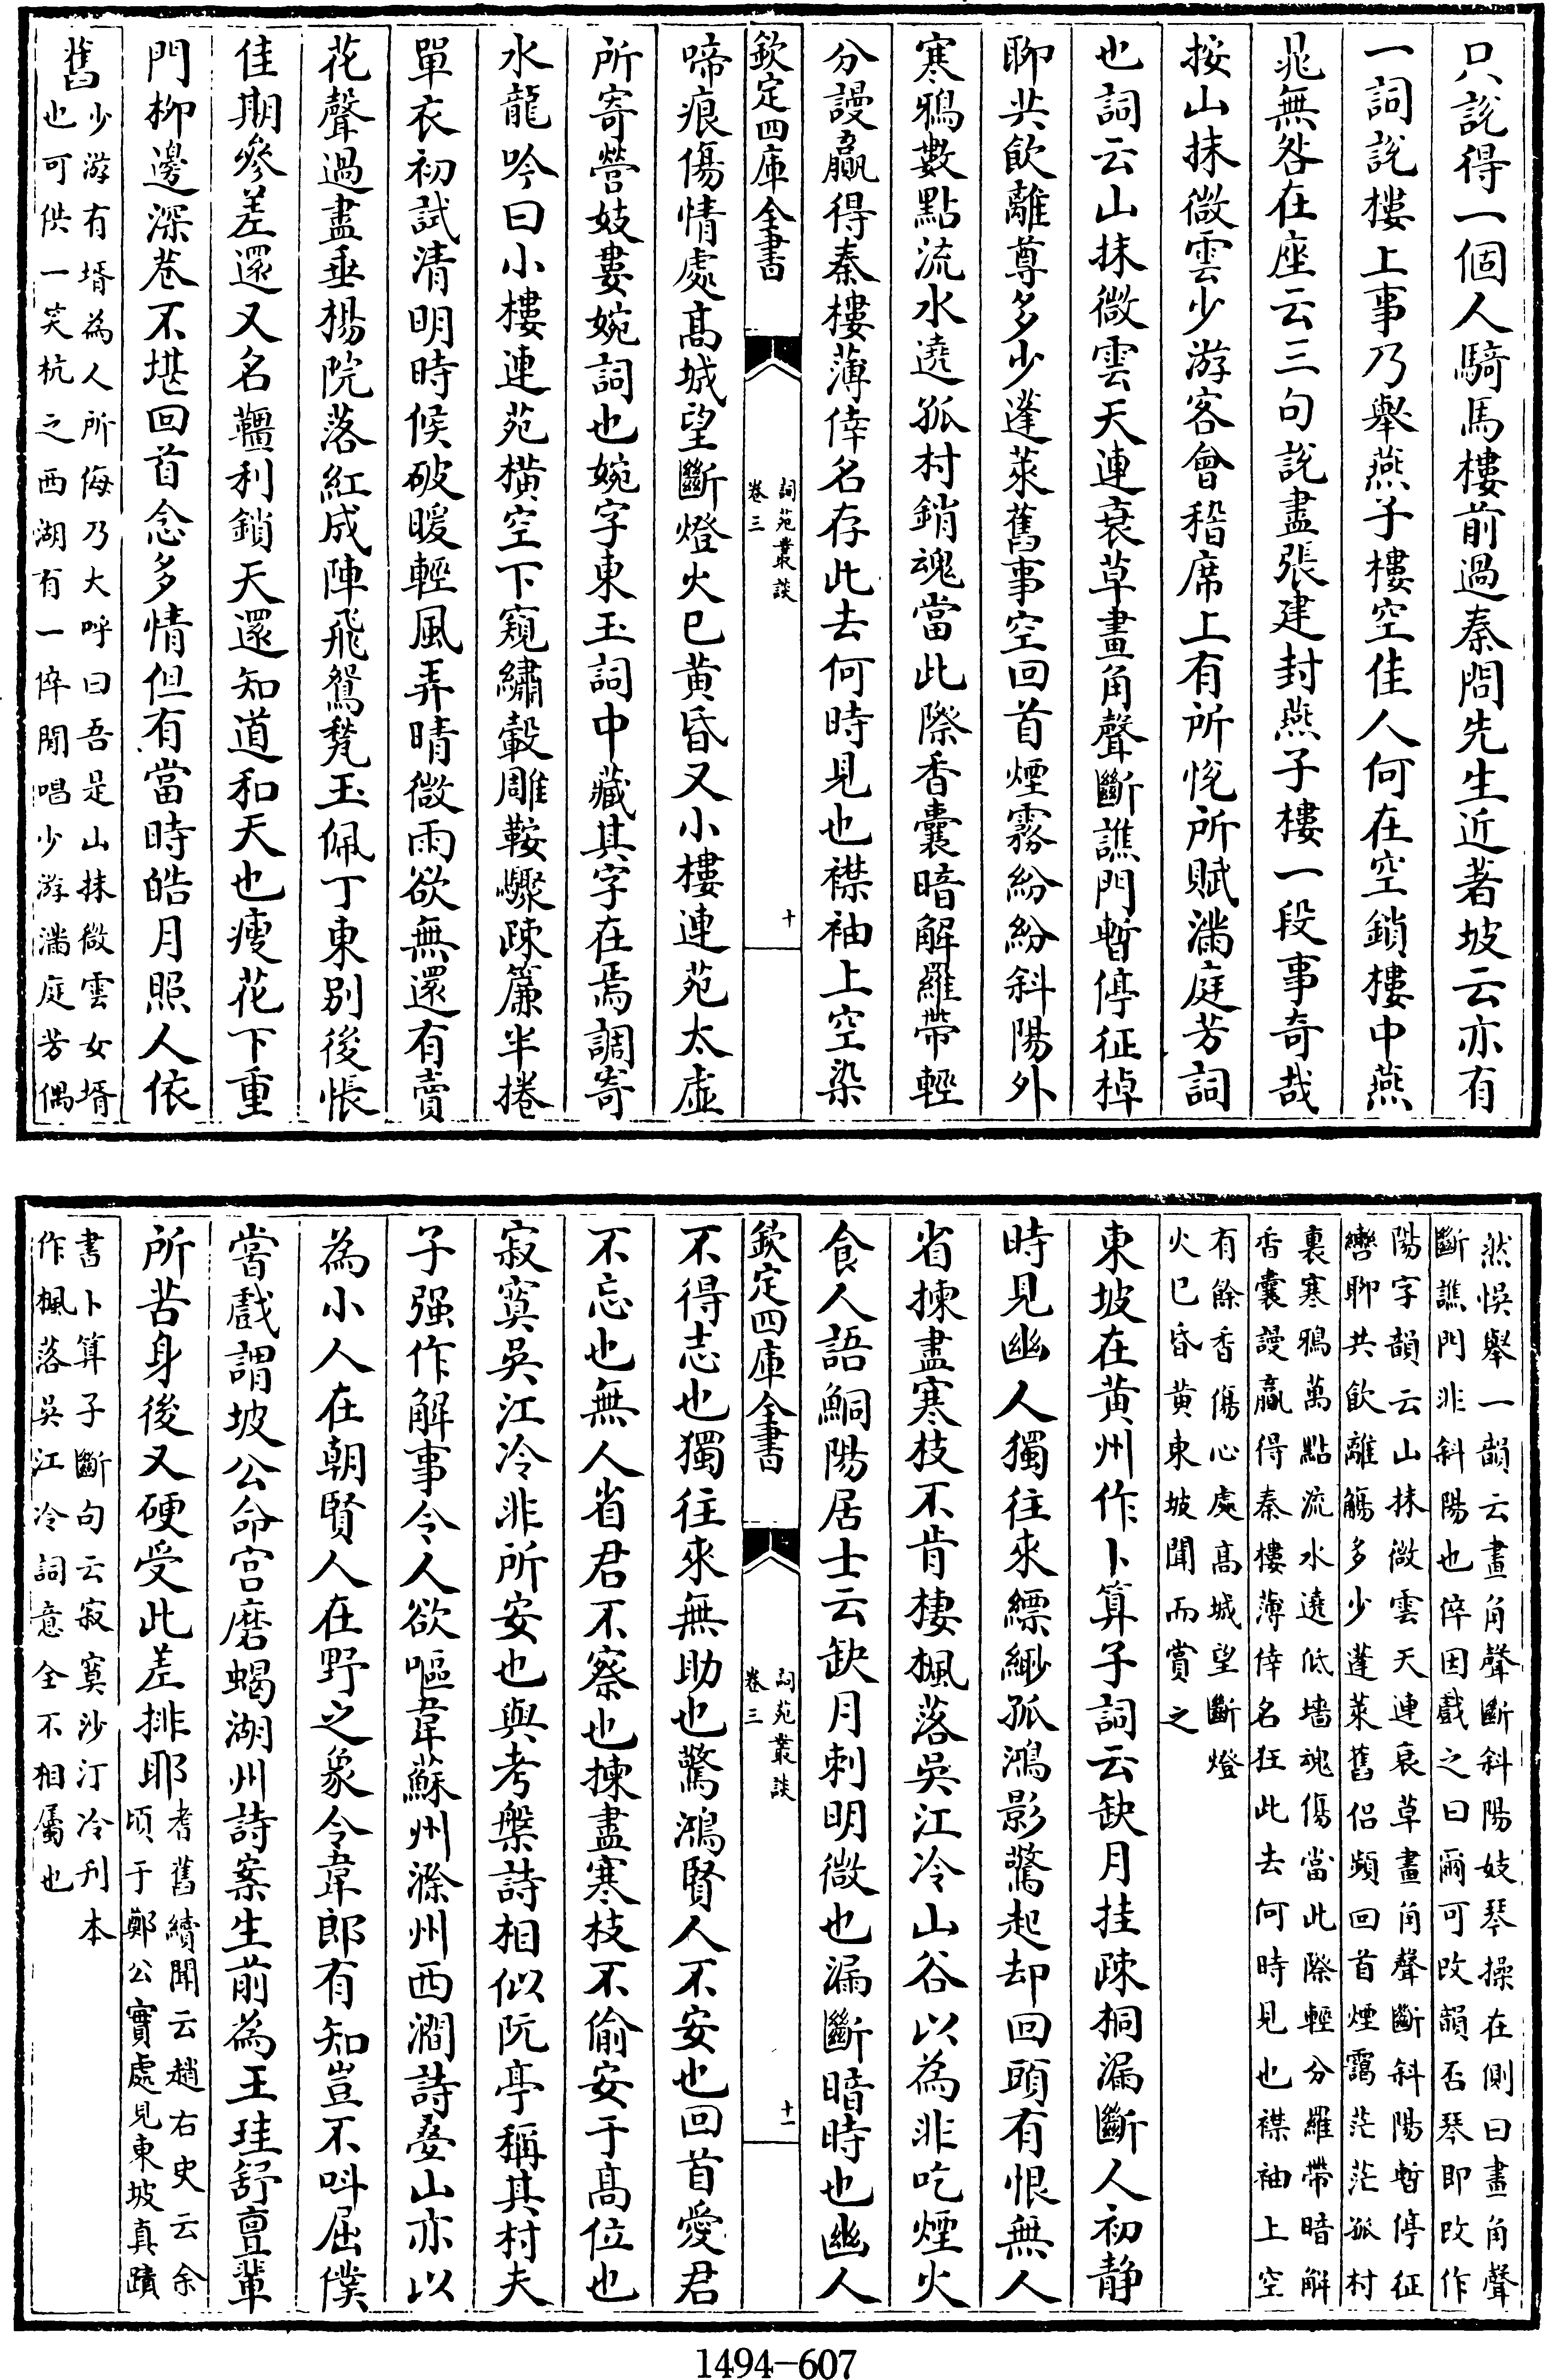 只說得一個人騎馬樓前過秦問先生近著坡云亦有
一詞說樓上事乃舉燕子樓空佳人何在空鎖樓中燕
晁無咎在座云三句說盡張建封燕子樓一段事奇哉
按山抹微雲少游客會稽席上有所悅所賦滿庭芳詞
也詞云山抹微雲天連衰草畫角聲斷譙門暫停征棹
聊共飲離尊多少蓬萊舊事空回首煙霧紛紛斜陽外
寒鴉數點流水遶孤村銷魂當此際香囊暗解羅帶輕
分謾贏得秦樓薄倖名存此去何時見也襟袖上空染
欽定四庫全書
詞苑叢談
卷三
十
啼痕傷情處高城望斷燈火已黄昏又小樓連苑太虛
所寄營妓婁婉詞也婉字東玉詞中藏其字在焉調寄
水龍吟曰小樓連苑橫空下窺繡轂雕鞍驟疎簾半捲
單衣初試清明時候破暖輕風弄晴微雨欲無還有賣
花聲過盡垂楊院落紅成陣飛鴛甃玉佩丁東別後悵
佳期參差還又名韁利鎖天還知道和天也瘦花下重
門柳邊深巷不堪回首念多情但有當時皓月照人依
舊
少游有壻為人所侮乃大呼曰吾是山抹微雲女壻
也可供一笑杭之西湖有一倅閒唱少游滿庭芳偶
然悞舉一韻云畫角聲斷斜陽妓琴操在側曰畫角聲
斷譙門非斜陽也倅因戲之曰爾可改韻否琴即改作
陽字韻云山抹微雲天連衰草畫角聲斷斜陽暫停征
轡聊共飲離觴多少蓬萊舊侶頻回首煙靄茫茫孤村
裏寒鴉萬點流水遶低墻魂傷當此際輕分羅帶暗解
香囊謾贏得秦樓薄倖名狂此去何時見也襟袖上空
有餘香傷心處高城望斷燈
火已昏黄東坡聞而賞之
東坡在黄州作卜算子詞云缺月挂疎桐漏斷人初静
時見幽人獨往來縹緲孤鴻影驚起却回頭有恨無人
省揀盡寒枝不肯棲楓落吳江冷山谷以為非吃煙火
食人語鮦陽居士云缺月刺明微也漏斷暗時也幽人
欽定四庫全書
詞苑叢談
卷三
十一
不得志也獨往來無助也驚鴻賢人不安也回首愛君
不忘也無人省君不察也揀盡寒枝不偷安于高位也
寂寞吳江冷非所安也與考槃詩相似阮亭稱其村夫
子强作解事令人欲嘔韋蘇州滁州西澗詩疊山亦以
為小人在朝賢人在野之象令韋郎有知豈不叫屈僕
嘗戲謂坡公命宫磨蝎湖州詩案生前為王珪舒亶輩
所苦身後又硬受此差排耶
耆舊續聞云趙右史云余
頃于鄭公實處見東坡真蹟
書卜算子斷句云寂寞沙汀冷刋本
作楓落吳江冷詞意全不相屬也
1494—607